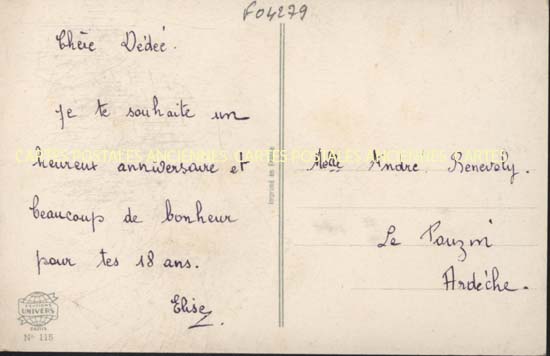 F04279
Chère Dédée.
Je te souhaite un
heureux anniversaire et
beaucoup de bonheur
pour tes 18 ans.
Elise
CARTES POSTALES ANCIENNES CARTES POSTALES ANCIENNES CARTES
Imprimé en France
Melle André Benevely.
Le Pouzin
Ardèche.
EDITIONS
UNIVERS
PARIS
No 115